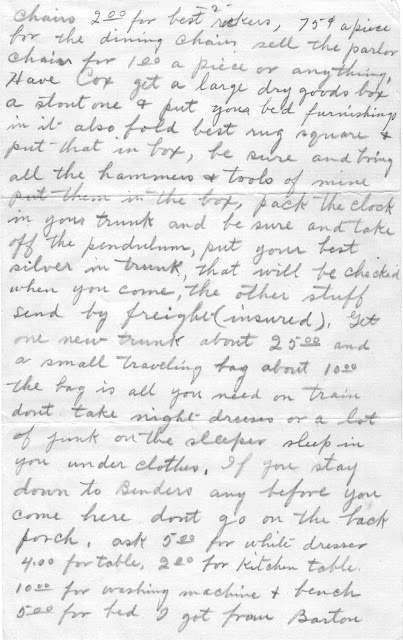 chairs 2.00 for best 2 rockers, 75¢ a piece
for the dining chairs, sell the parlor
chairs for 1.00 a piece or anything,
Have Cox get a large dry goods box
a stout one & put your bed furnishings
in it also, fold best rug square &
put that in box, be sure and bring
all the hammers & tools of mine
put them in the box, pack the clock
in your trunk and be sure and take
off the pendulum, put your best
silver in trunk, that will be checked
when you come, the other stuff
send by freight (insured). Get
one new trunk about 25.00 and
a small traveling bag about 10.00
the bag is all you need on train
dont take night-dresses or a lot
of junk on the sleeper sleep in
you under clothes. If you stay
down to Benders any before you
come here dont go on the back
porch. ask 5.00 for white dresser
4.00 for table, 2.00 for Kitchen table.
10.00 for washing machine & bench
5.00 for bed I got from Barton